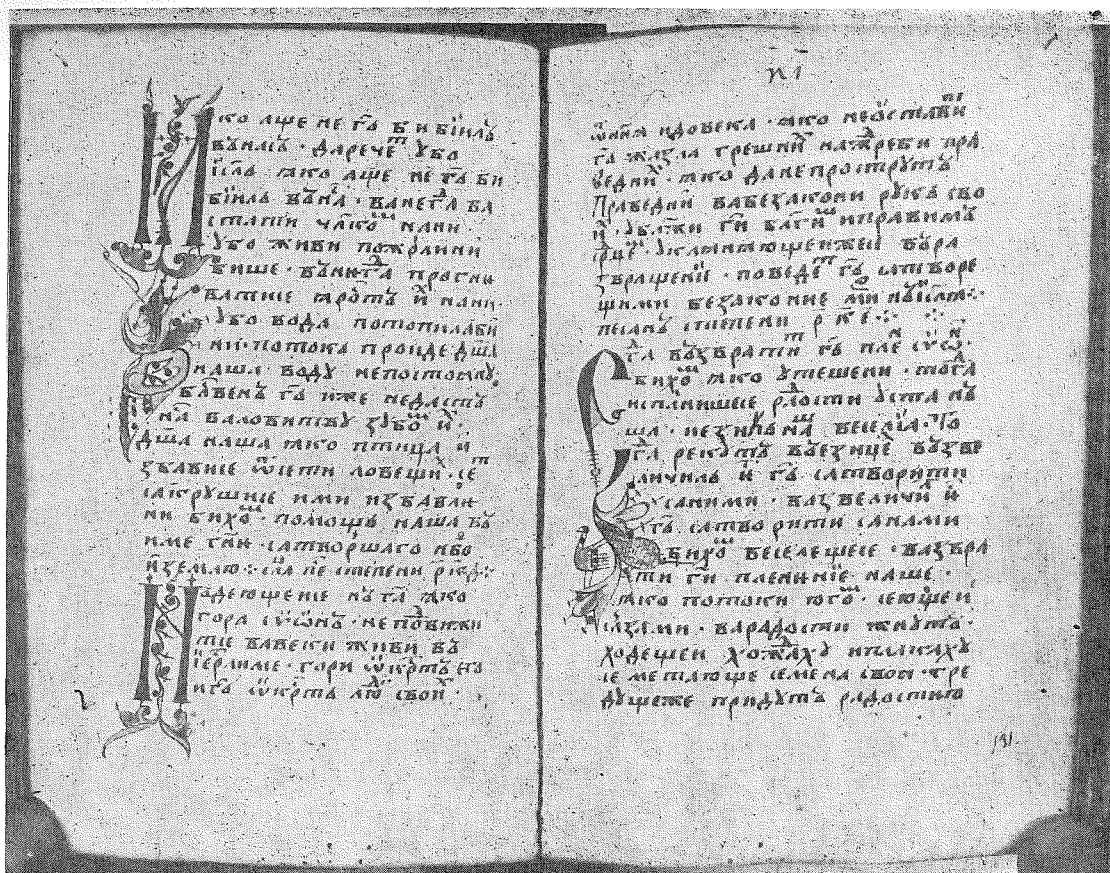 ко аще не г҃ь би билъ
вънасъ · даречеть убо
їсль ꙗко аще не г҃ь би
билъ вънасъ · вънегда въ
стати чл҃комь нани
убо живи пожрлини
бише · вънигда прогнѣ
ватисе ꙗрость и҆ нани ·
убо вода потопилаби
ни · потокь проиде дш҃а
наша воду непостоꙗну
блⷭ҇вень г҃ь иже недасть
на въловитву зубомь и҆ ·
дш҃а наша ꙗко птица и҆
збависе ѿсети ловещиⷯ · сеть
сакрушисе и ми избавлѥ
ни бихомь · помощь наша въ
име гн҃ѥ · сатворшаго нбо
и҆землю ⁘ сла пѣ степени рк҃д ⁘
адеющеисе на г҃ь ꙗко
гора сиѡнь · неповижи
тсе вавеки живи въ
їерлиме · гори ѡкрть ѥго
и г҃ь ѡкрть люⷣ своиⷯ ·
ѿнꙗ идовека · ꙗко неѡстави
г҃ь жазла грешниⷯ нажреби пра
ведниⷯ · ꙗко данепрострутъ
Праведни вабезакони рукь сво
иⷯ · ублажи г҃и благиⷨ иправимъ
срⷣце · уклонꙗющеижеи вьра
звращениѥ · поведеть г҃ь сатворе
щими безаконие миⷬ наїсла ⁘
песань степени р҃к҃е ⁘
гда възврати г҃ь плень сиѡнь
бихомь ꙗко утешени · тогда
исплнишесе радости уста на
ша · иезикь нашь веселїа · То
гда рекуть въезицеⷯ възве
личиль и҆ г҃ь сатворити
санами · вазвеличиль и҆
г҃ь сатворити санами
бихомь веселещесе · вазвра
ти г҃и пленѥниѥ наше ·
ꙗко потоки югомь · сеющеи
слзами · варадости жнуть ·
ходещеи хождаху иплакаху
се метающе семена свои · гре
дущеже придуть радостию
191.